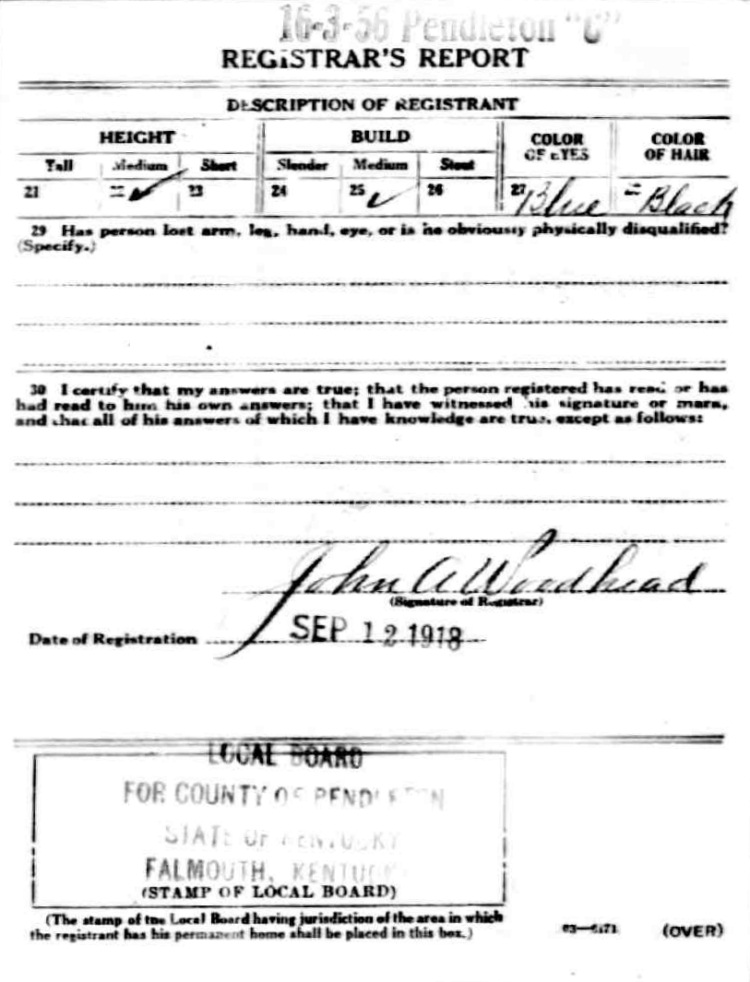 16-3-56 Pendleton "C"
REGISTRAR'S REPORT
DESCRIPTION OF REGISTRANT
HEIGHT BUILD COLOR OF EYES COLOR OF HAIR
Tall Medium Short Slender Medium Stout
21 22 ✓ 23 24 25 ✓ 26 27 Blue Black
29 Has person lost arm, leg, hand, eye, or is he obviously physically disqualified?
(Specify.)
30 I certify that my answers are true; that the person registered has read or has
had read to him his own answers; that I have witnessed his signature or mark,
and that all of his answers of which I have knowledge are true, except as follows:
John A Woodhead
(Signature of Registrar)
Date of Registration SEP 12 1918
LOCAL BOARD
FOR COUNTY OF PENDLETON
STATE OF KENTUCKY
FALMOUTH, KENTUCKY
(STAMP OF LOCAL BOARD)
(The stamp of the Local Board having jurisdiction of the area in which
the registrant has his permanent home shall be placed in this box.)
(OVER)